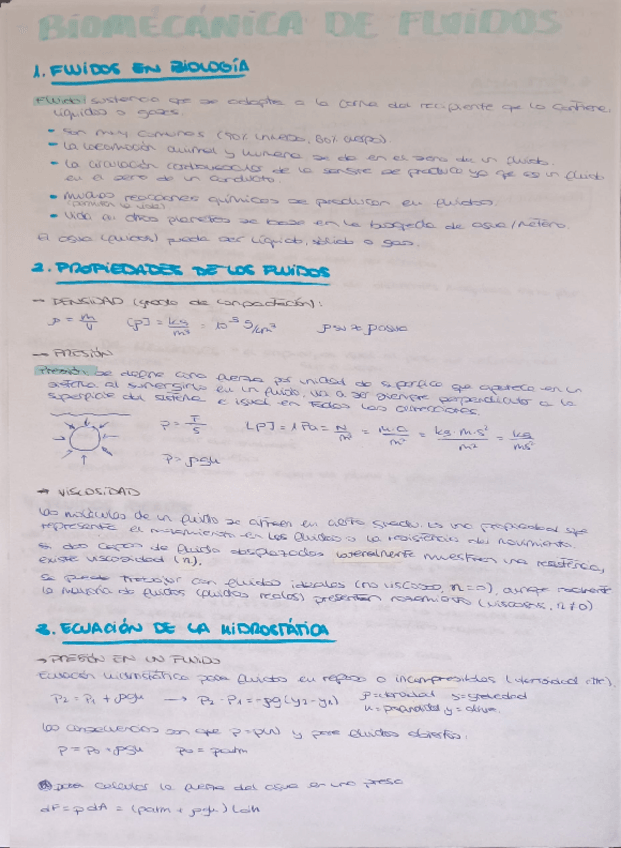 BIOMECÁNICA DE FLUIDOS
1. FLUIDOS EN BIOLOGÍA
Fluido: sustancia que se adapta a la forma del recipiente que la contiene.
Líquidos o gases.
- Son muy comunes (90% universo, 60% cuerpo).
- La locomoción animal y humana se da en el seno de un fluido.
- La circulación cardiovascular de la sangre se produce ya que es un fluido
en el seno de un conducto.
- Muchas reacciones químicas se producen en fluidos.
- Vida a otros planetas se basa en la búsqueda de agua/metano.
El agua (fluidos) puede ser líquido, sólido o gas.
2. PROPIEDADES DE LOS FLUIDOS
→ DENSIDAD (grado de compactación):
ρ = m/V [ρ] = kg/m³ = 10⁻³ g/cm³
→ PRESIÓN
Presión se define como fuerza por unidad de superficie que aparece en un
sistema al sumergirlo en un fluido, va a ser siempre perpendicular a la
superficie del sistema e igual en todas las direcciones.
P = F/S [P] = 1 Pa = N/m² = m·a/m² = kg·m·s²/m² = kg/ms²
P = ρgh
→ VISCOSIDAD
Las moléculas de un fluido se atraen en cierto grado. Es una propiedad que
representa el rozamiento en los fluidos o la resistencia al movimiento.
Si dos capas de fluido desplazadas lateralmente muestran una resistencia,
existe viscosidad (η).
Se puede trabajar con fluidos ideales (no viscosos, η=0), aunque realmente
la mayoría de fluidos (fluidos reales) presentan rozamiento (viscosos, η≠0)
3. ECUACIÓN DE LA HIDROSTÁTICA
→ PRESIÓN EN UN FLUIDO
Ecuación hidrostática para fluidos en reposo o incompresibles (densidad cte).
P₂ = P₁ + ρgh → P₂ - P₁ = -ρg(y₂-y₁) ρ=densidad g=gravedad
h=profundidad y=altura.
Las consecuencias son que p=p(h) y para fluidos abiertos.
P = P₀ + ρgh P₀ = patm
para calcular la fuerza del agua en una presa
dF = p dA = (patm + ρgh) Ldh